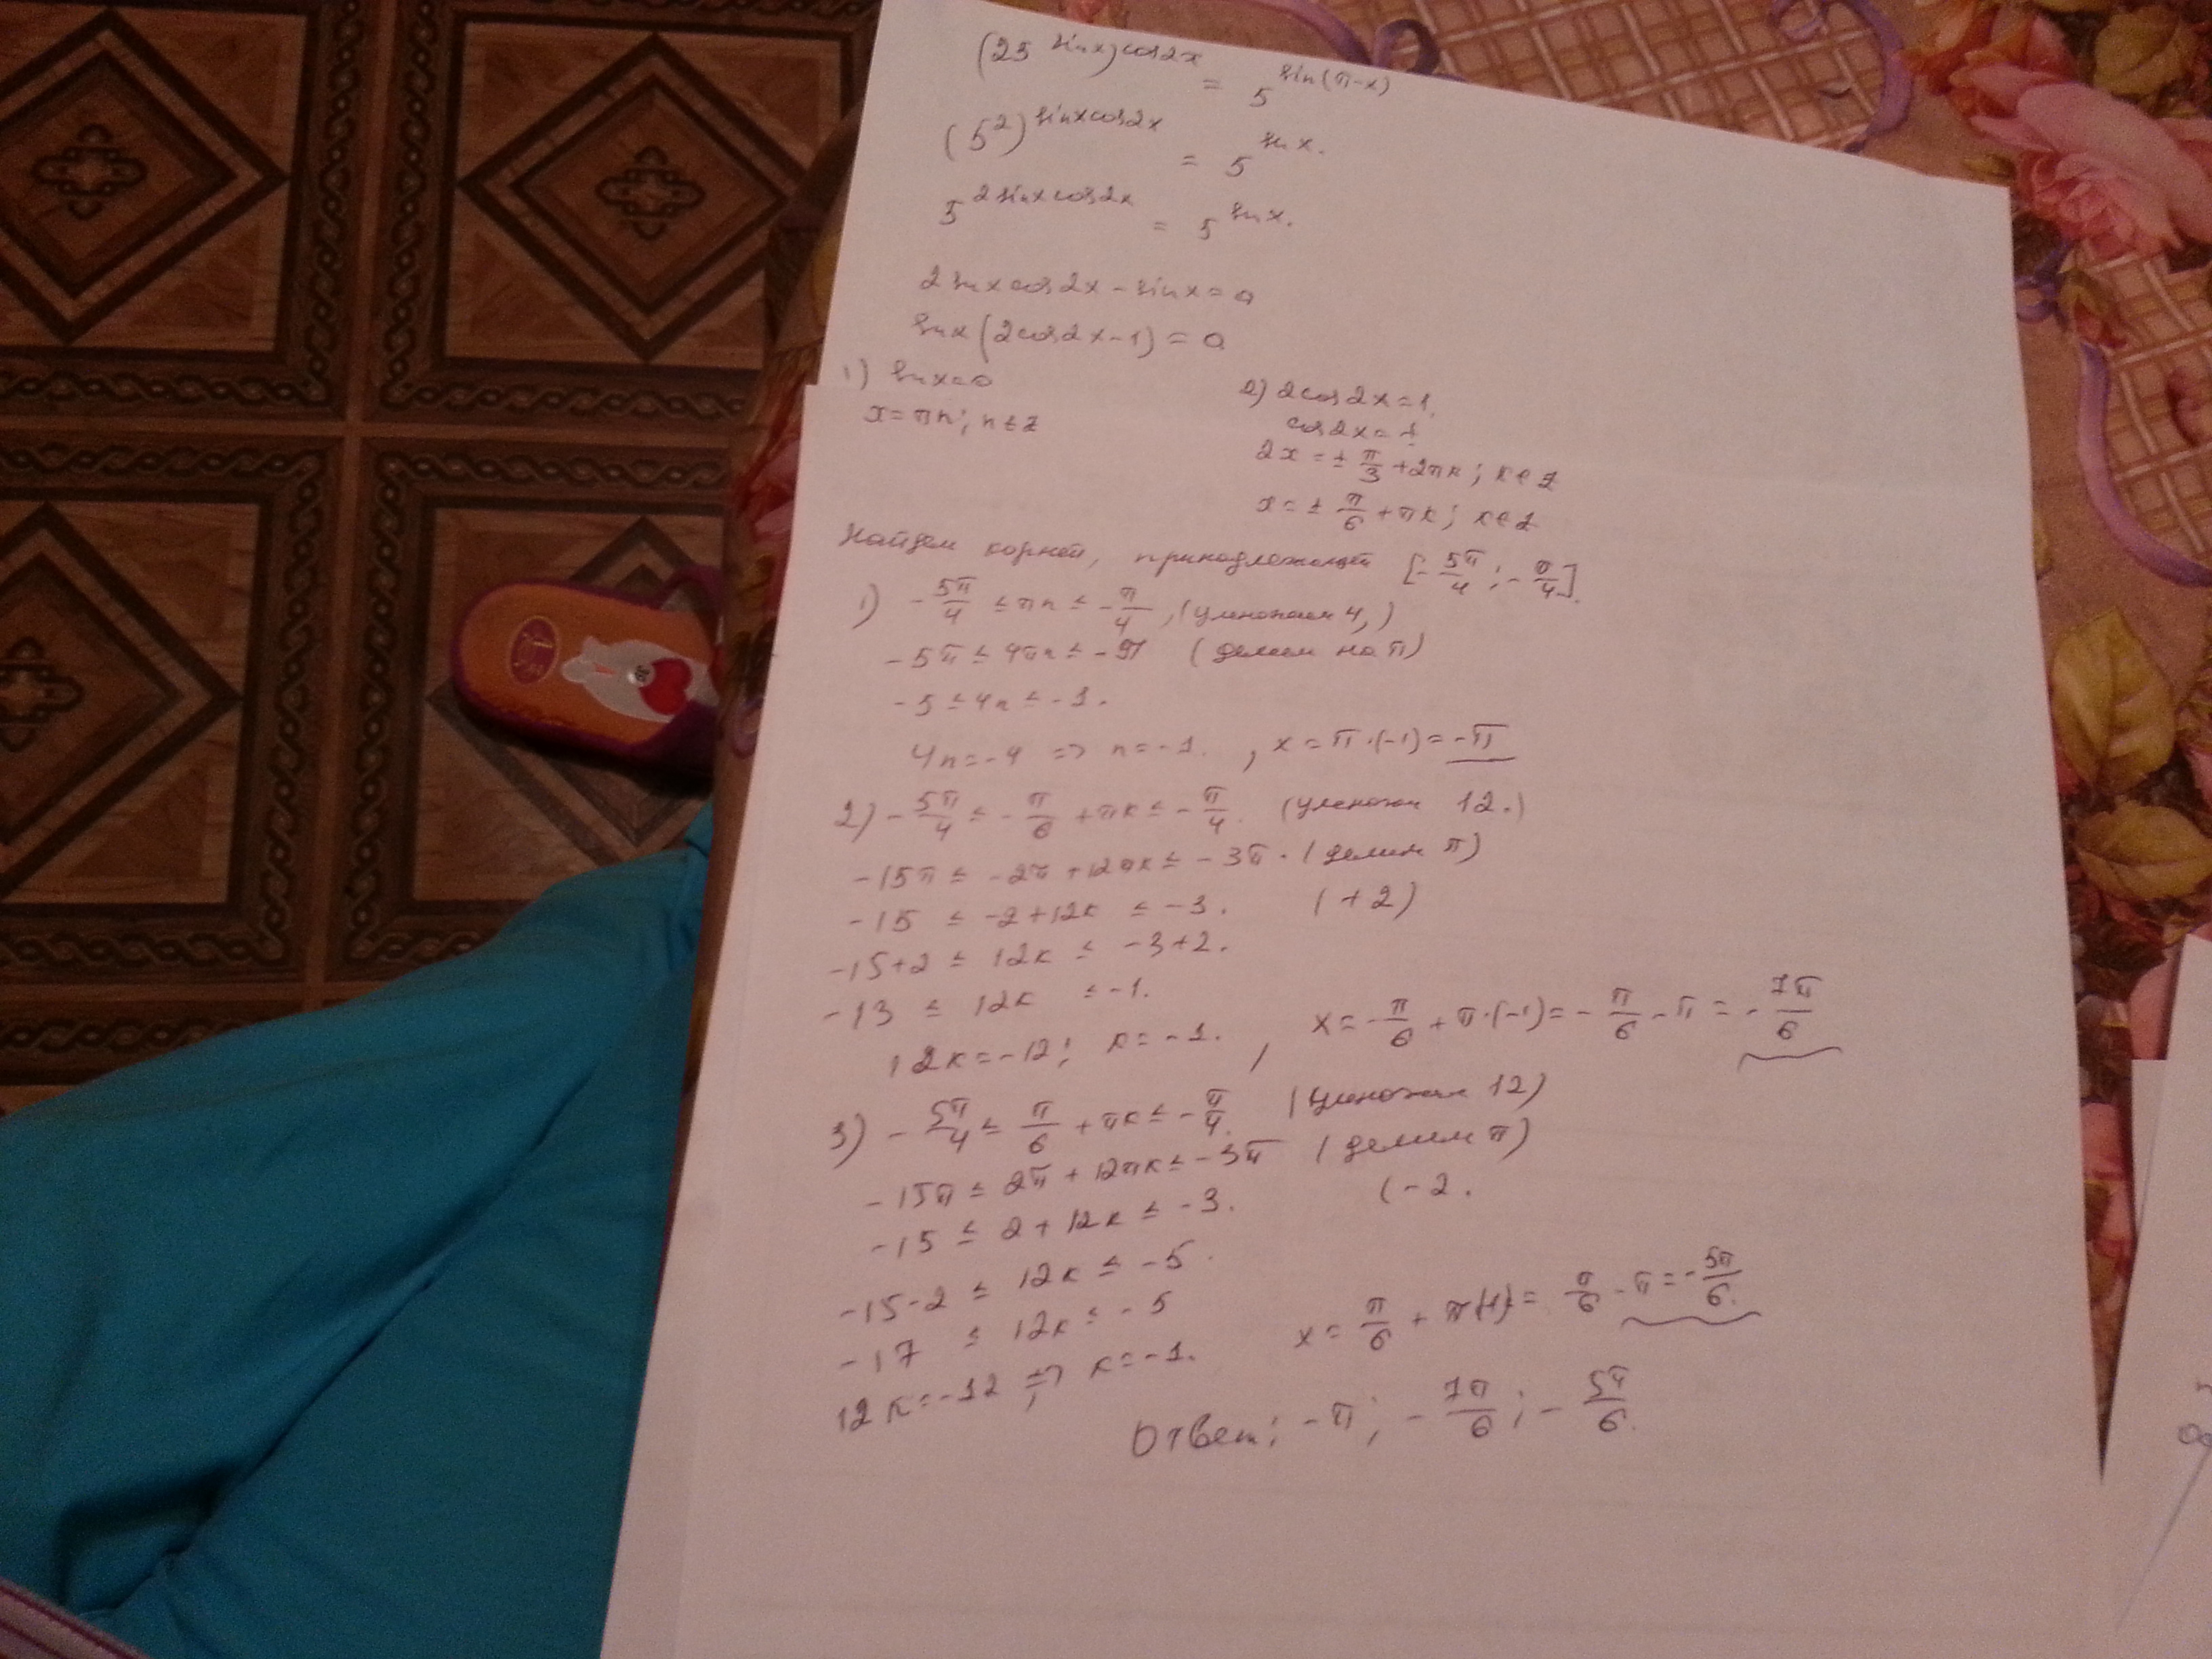 (25^sinx)^cos2x = 5^sin(π-x)
(5²)^sinxcos2x = 5^sinx.
5^2sinxcos2x = 5^sinx.
2sinxcos2x - sinx = 0
sinx(2cos2x-1) = 0
1) sinx=0
x = πn; n∈Z
2) 2cos2x=1.
cos2x=
2x = ± π/3 + 2πk; k∈Z
x = ± π/6 + πk; k∈Z
Найдем корней, принадлежащей [-5π/4; -π/4].
1) -5π/4 ≤ πn ≤ -π/4, (умножаем 4,)
-5π ≤ 4πn ≤ -π (делим на π)
-5 ≤ 4n ≤ -1.
4n = -4 => n = -1. , x = π·(-1) = -π
2) -5π/4 ≤ -π/6 + πk ≤ -π/4. (умножаем 12.)
-15π ≤ -2π + 12πk ≤ -3π. (делим π)
-15 ≤ -2+12k ≤ -3. (+2)
-15+2 ≤ 12k ≤ -3+2.
-13 ≤ 12k ≤ -1.
12k = -12; k = -1. , x = -π/6 + π·(-1) = -π/6 - π = -7π/6
3) -5π/4 ≤ π/6 + πk ≤ -π/4. (умножаем 12)
-15π ≤ 2π + 12πk ≤ -3π (делим π)
-15 ≤ 2 + 12k ≤ -3. (-2.
-15-2 ≤ 12k ≤ -5.
-17 ≤ 12k ≤ -5
12k = -12 => k = -1. x = π/6 + π(-1) = π/6 - π = -5π/6.
Ответ: -π; -7π/6; -5π/6.